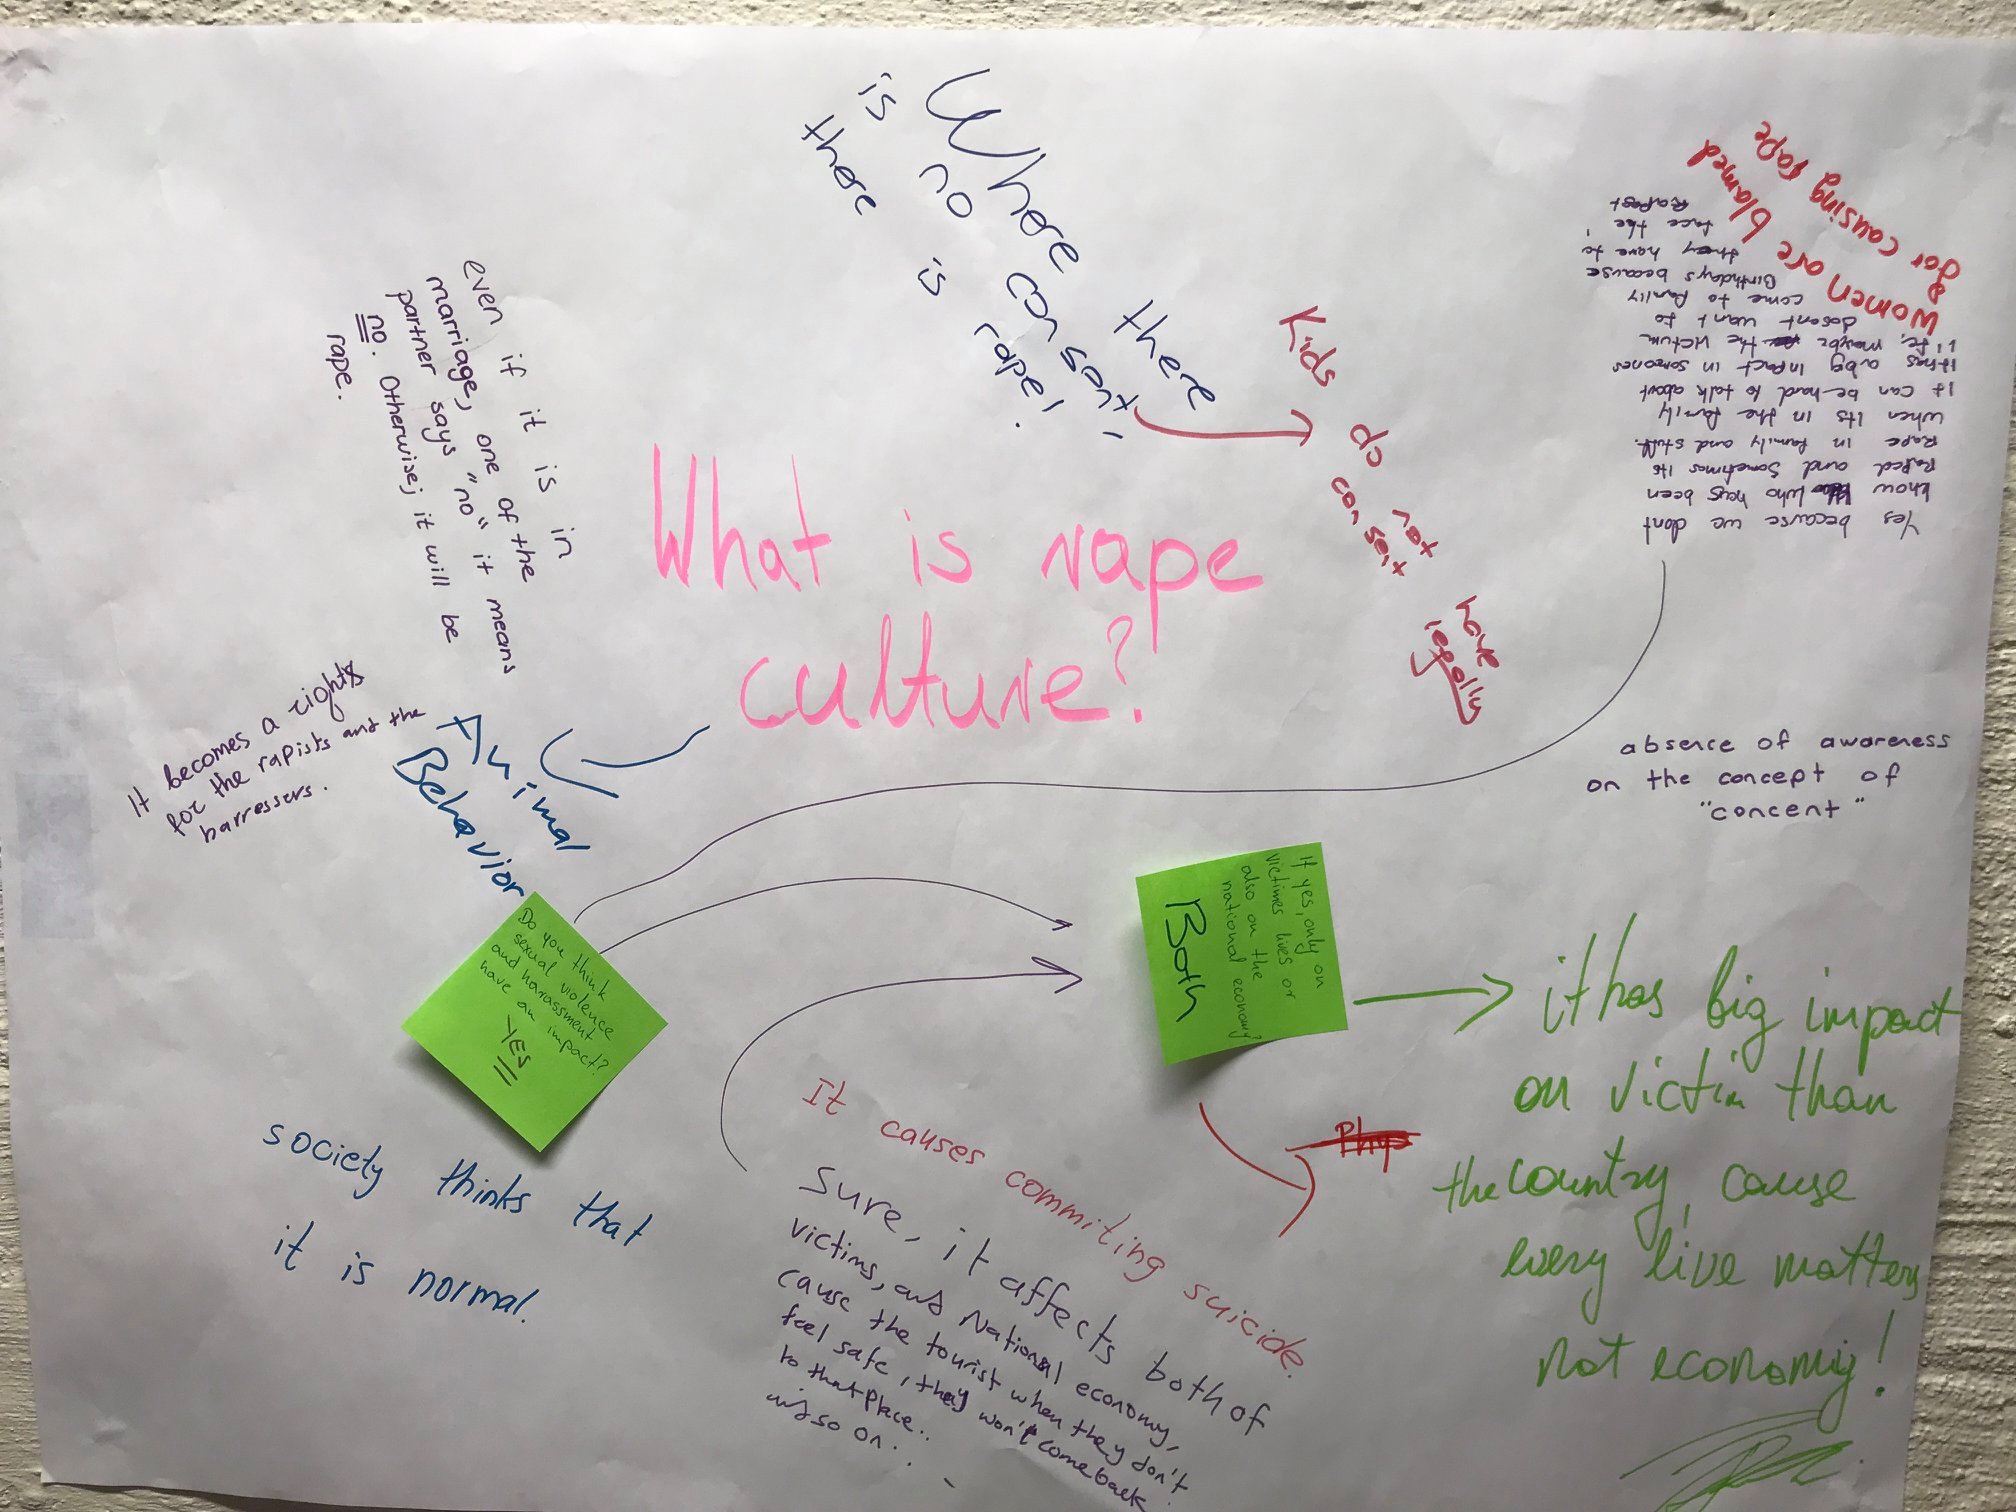 What is rape
culture?
Where there
is no consent,
there is rape!
Kids do
not have
consent legally
Women are blamed
for causing rape
Yes because we dont
know who hays been
Raped and Sometimes its
Rape in family and stuff.
when its in the family
it can be hard to talk about
it has a big Infact in someones
life, maybe the victum
dosent want to
come to family
Birthdays because
they have to
face the
Rapest
absence of awareness
on the concept of
"concent"
even if it is in
marriage, one of the
partner says "no" it means
no. Otherwise; it will be
rape.
It becomes a rights
for the rapists and the
harressers.
Animal
Behavior
Do you think
sexual violence
and harassment
have an impact?
YES
If yes, only on
victimes lives or
also on the
national economy?
Both
it has big impact
on victim than
the country, cause
every live matters
not economy!
society thinks that
it is normal.
It causes commiting suicide.
Sure, it affects both of
victims, and National economy,
cause the tourist when they don't
feel safe, they won't come back
to that place..
and so on.